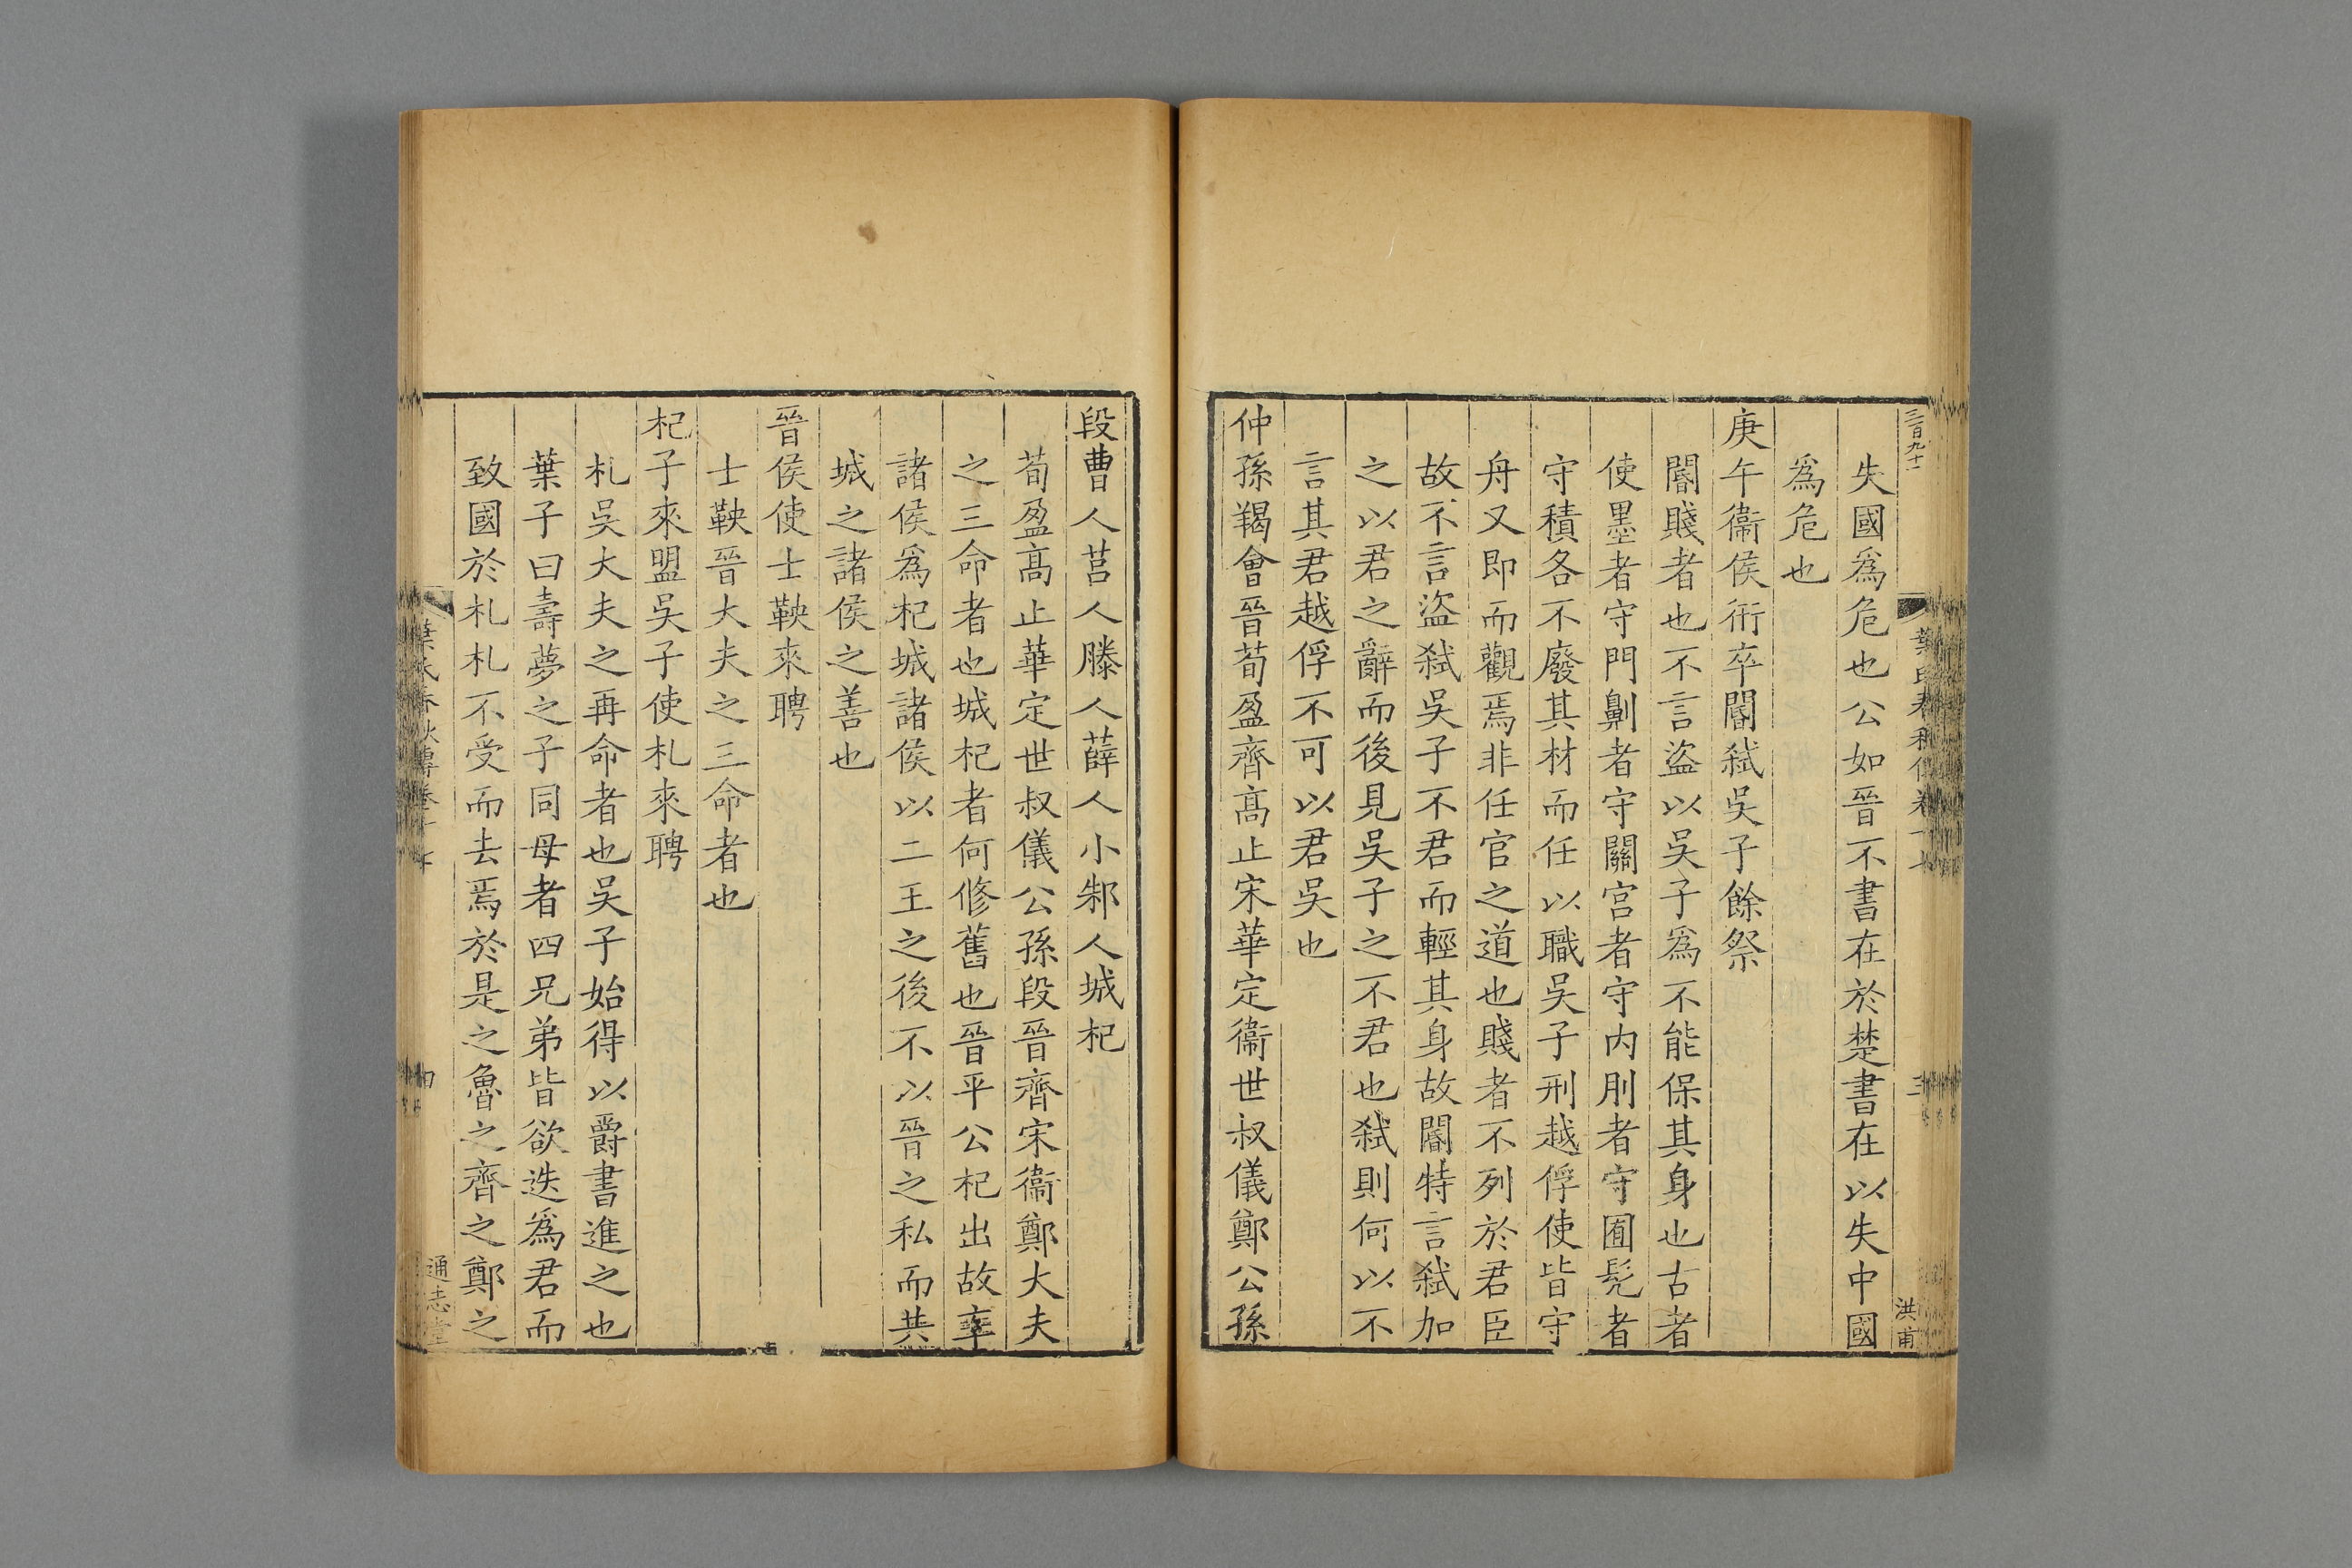 三百九十一
葉氏春秋傳卷十七
三
洪甫
失國爲危也公如晉不書在於楚書在以失中國
爲危也
庚午衞侯衎卒閽弑吳子餘祭
閽賤者也不言盜以吳子爲不能保其身也古者
使墨者守門劓者守關宮者守内刖者守囿髠者
守積各不廢其材而任以職吳子刑越俘使皆守
舟又即而觀焉非任官之道也賤者不列於君臣
故不言盜弑吳子不君而輕其身故閽特言弑加
之以君之辭而後見吳子之不君也弑則何以不
言其君越俘不可以君吳也
仲孫羯會晉荀盈齊高止宋華定衞世叔儀鄭公孫
段曹人莒人滕人薛人小邾人城杞
荀盈高止華定世叔儀公孫段晉齊宋衞鄭大夫
之三命者也城杞者何修舊也晉平公杞出故率
諸侯爲杞城諸侯以二王之後不以晉之私而共
城之諸侯之善也
晉侯使士鞅來聘
士鞅晉大夫之三命者也
杞子來盟吳子使札來聘
札吳大夫之再命者也吳子始得以爵書進之也
葉子曰壽夢之子同母者四兄弟皆欲迭爲君而
致國於札札不受而去焉於是之魯之齊之鄭之
葉氏春秋傳卷十七
四
通志堂